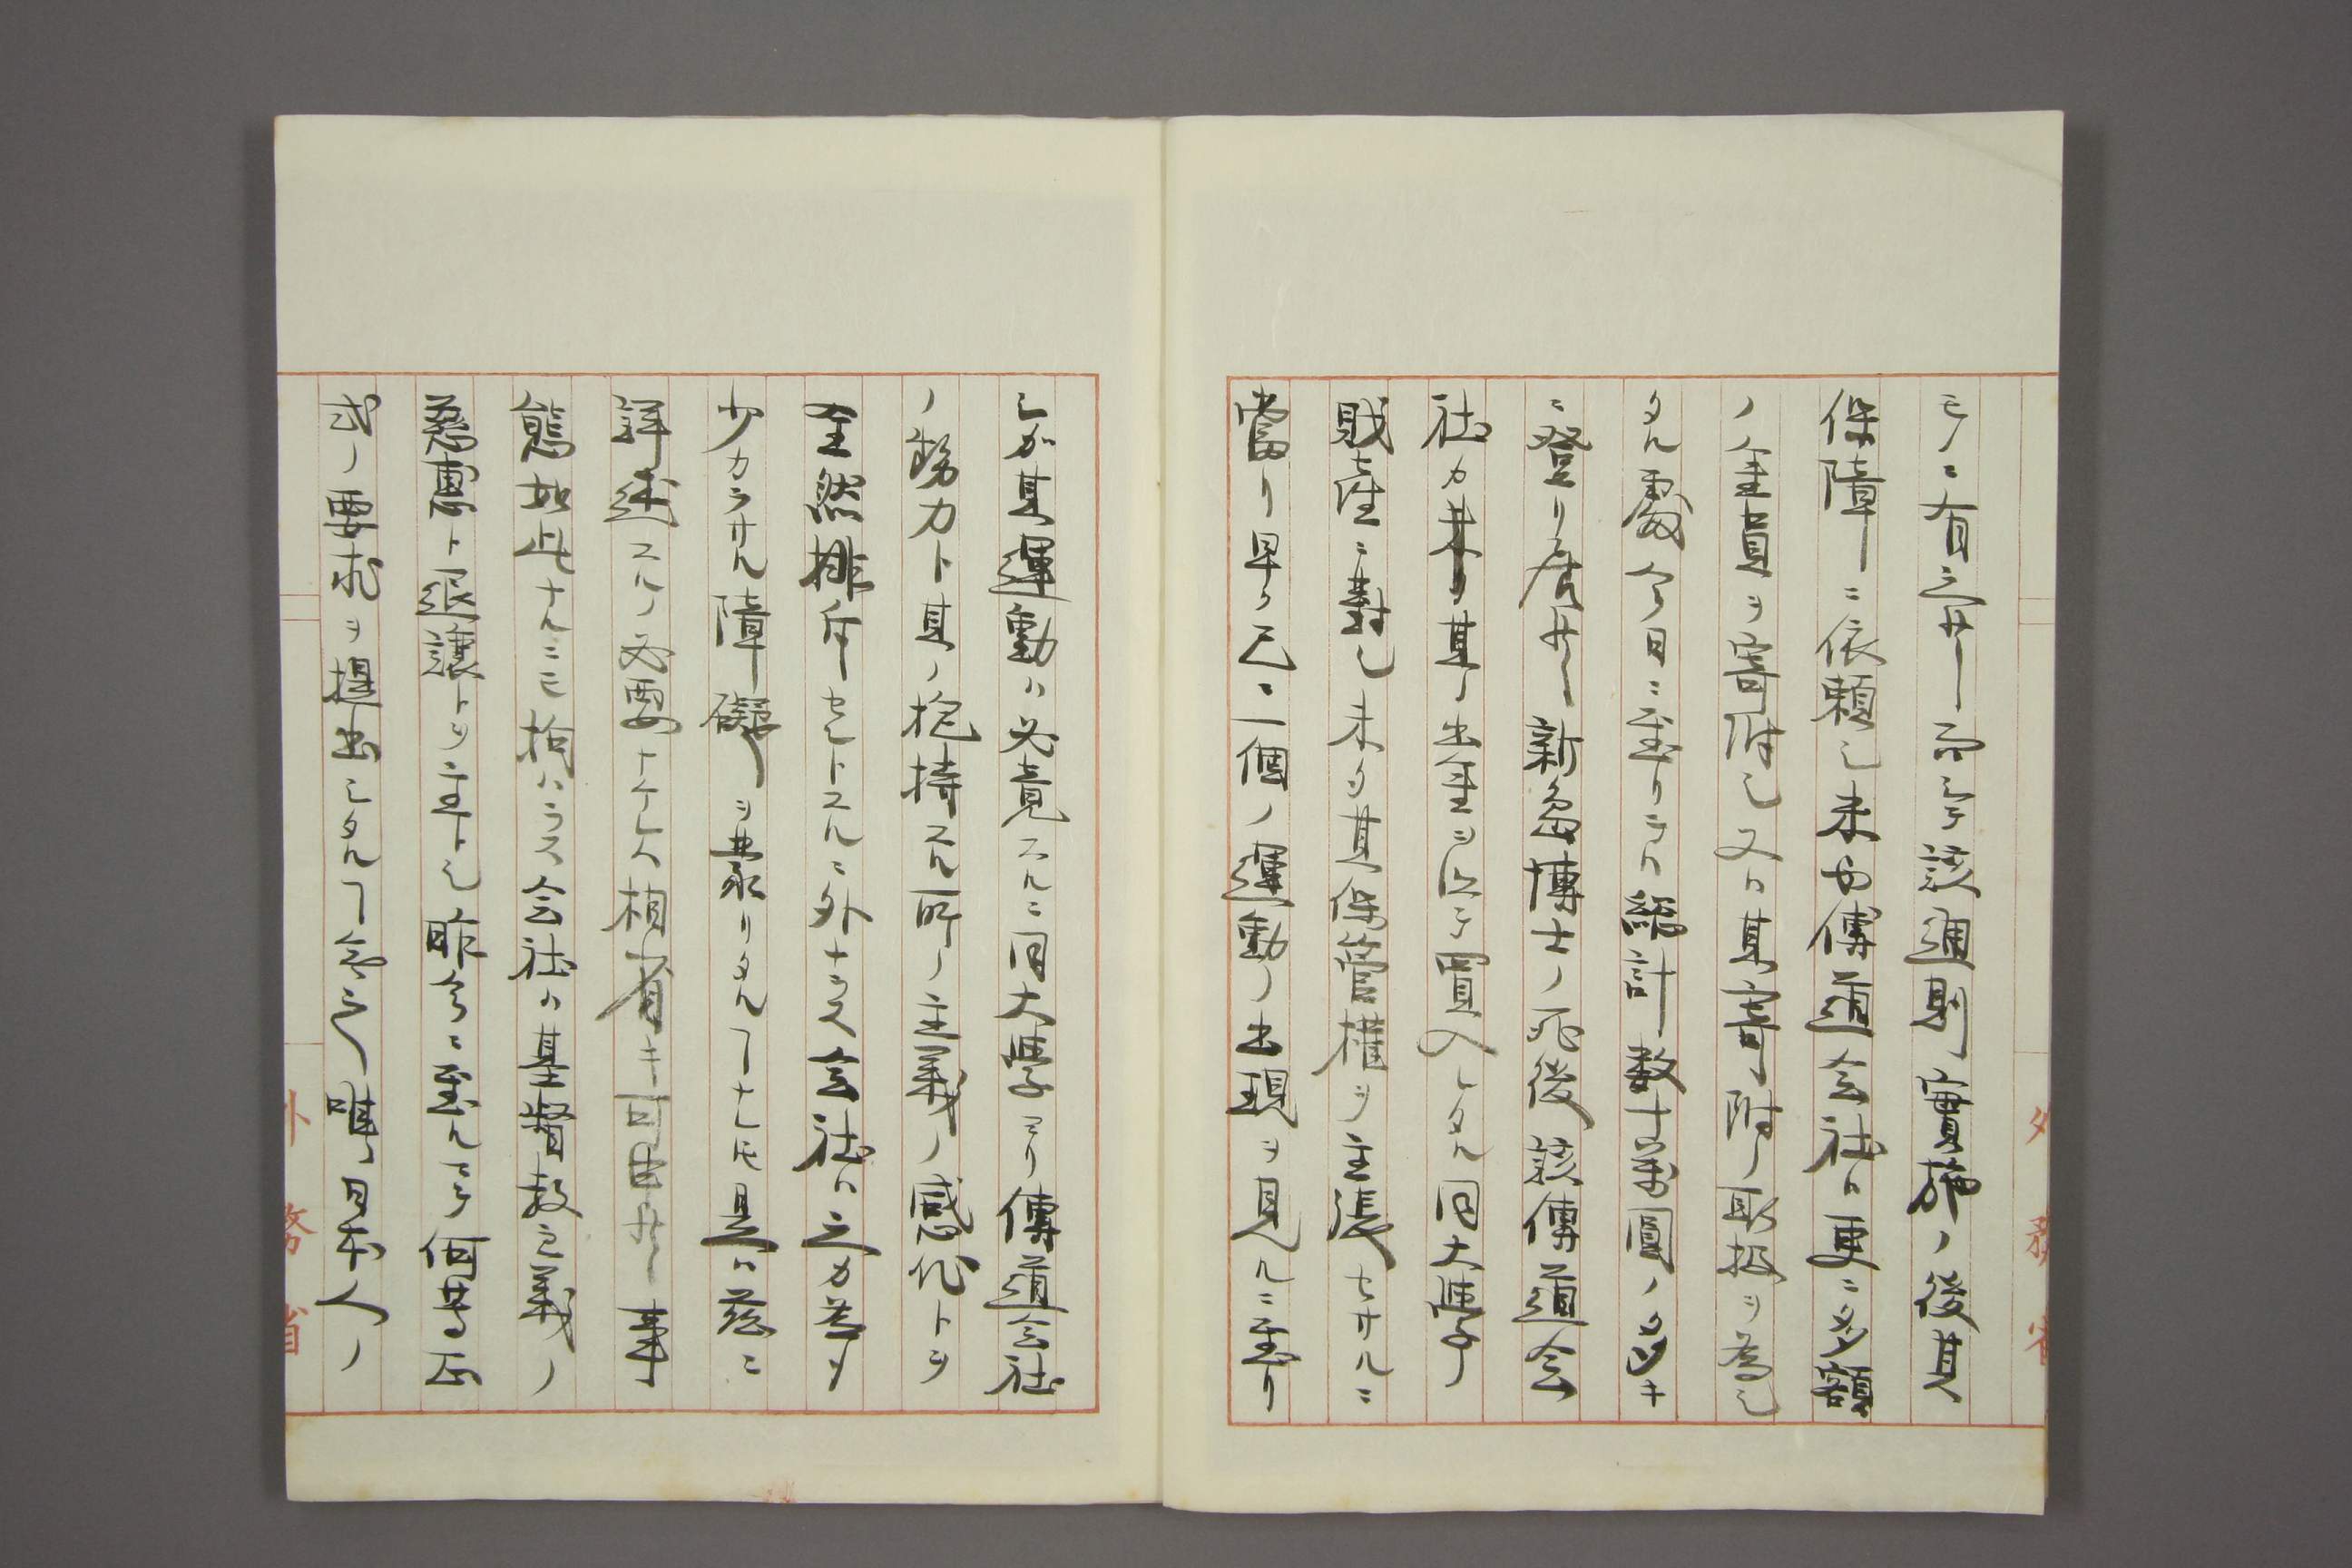 モノニ有之候而シテ該通則實施ノ後其
保障ニ依頼シ米国傳道会社ハ更ニ多額
ノ金員ヲ寄附シ又ハ其寄附ノ取扱ヲ為シ
タル處今日ニ至リテハ總計数十萬圓ノ多キ
ニ登リ居候新島博士ノ死後該傳道会
社カ来リ其ノ出金ヲ以テ買入レタル同大学ノ
財産ニ對シ未タ其保管権ヲ主張セサルニ
當リ早ク已ニ一個ノ運動ノ出現ヲ見ルニ至リ
シカ其運動ハ必竟スルニ同大学ヨリ傳道会社
ノ勢力ト其ノ抱持スル所ノ主義ノ感化トヲ
全然排斥セントスルニ外ナラス会社ハ之カ為メ
少カラサル障礙ヲ蒙リタルヿナレトモ是ハ茲ニ
詳述スルノ必要ナケレハ相省キ可申候事
態如此ナルニモ拘ハラス会社ハ基督教主義ノ
忍耐ト退譲トヲ主トシ昨今ニ至ルマテ何等正
式ノ要求ヲ提出シタルヿ無之唯日本人ノ
外務省
外務省